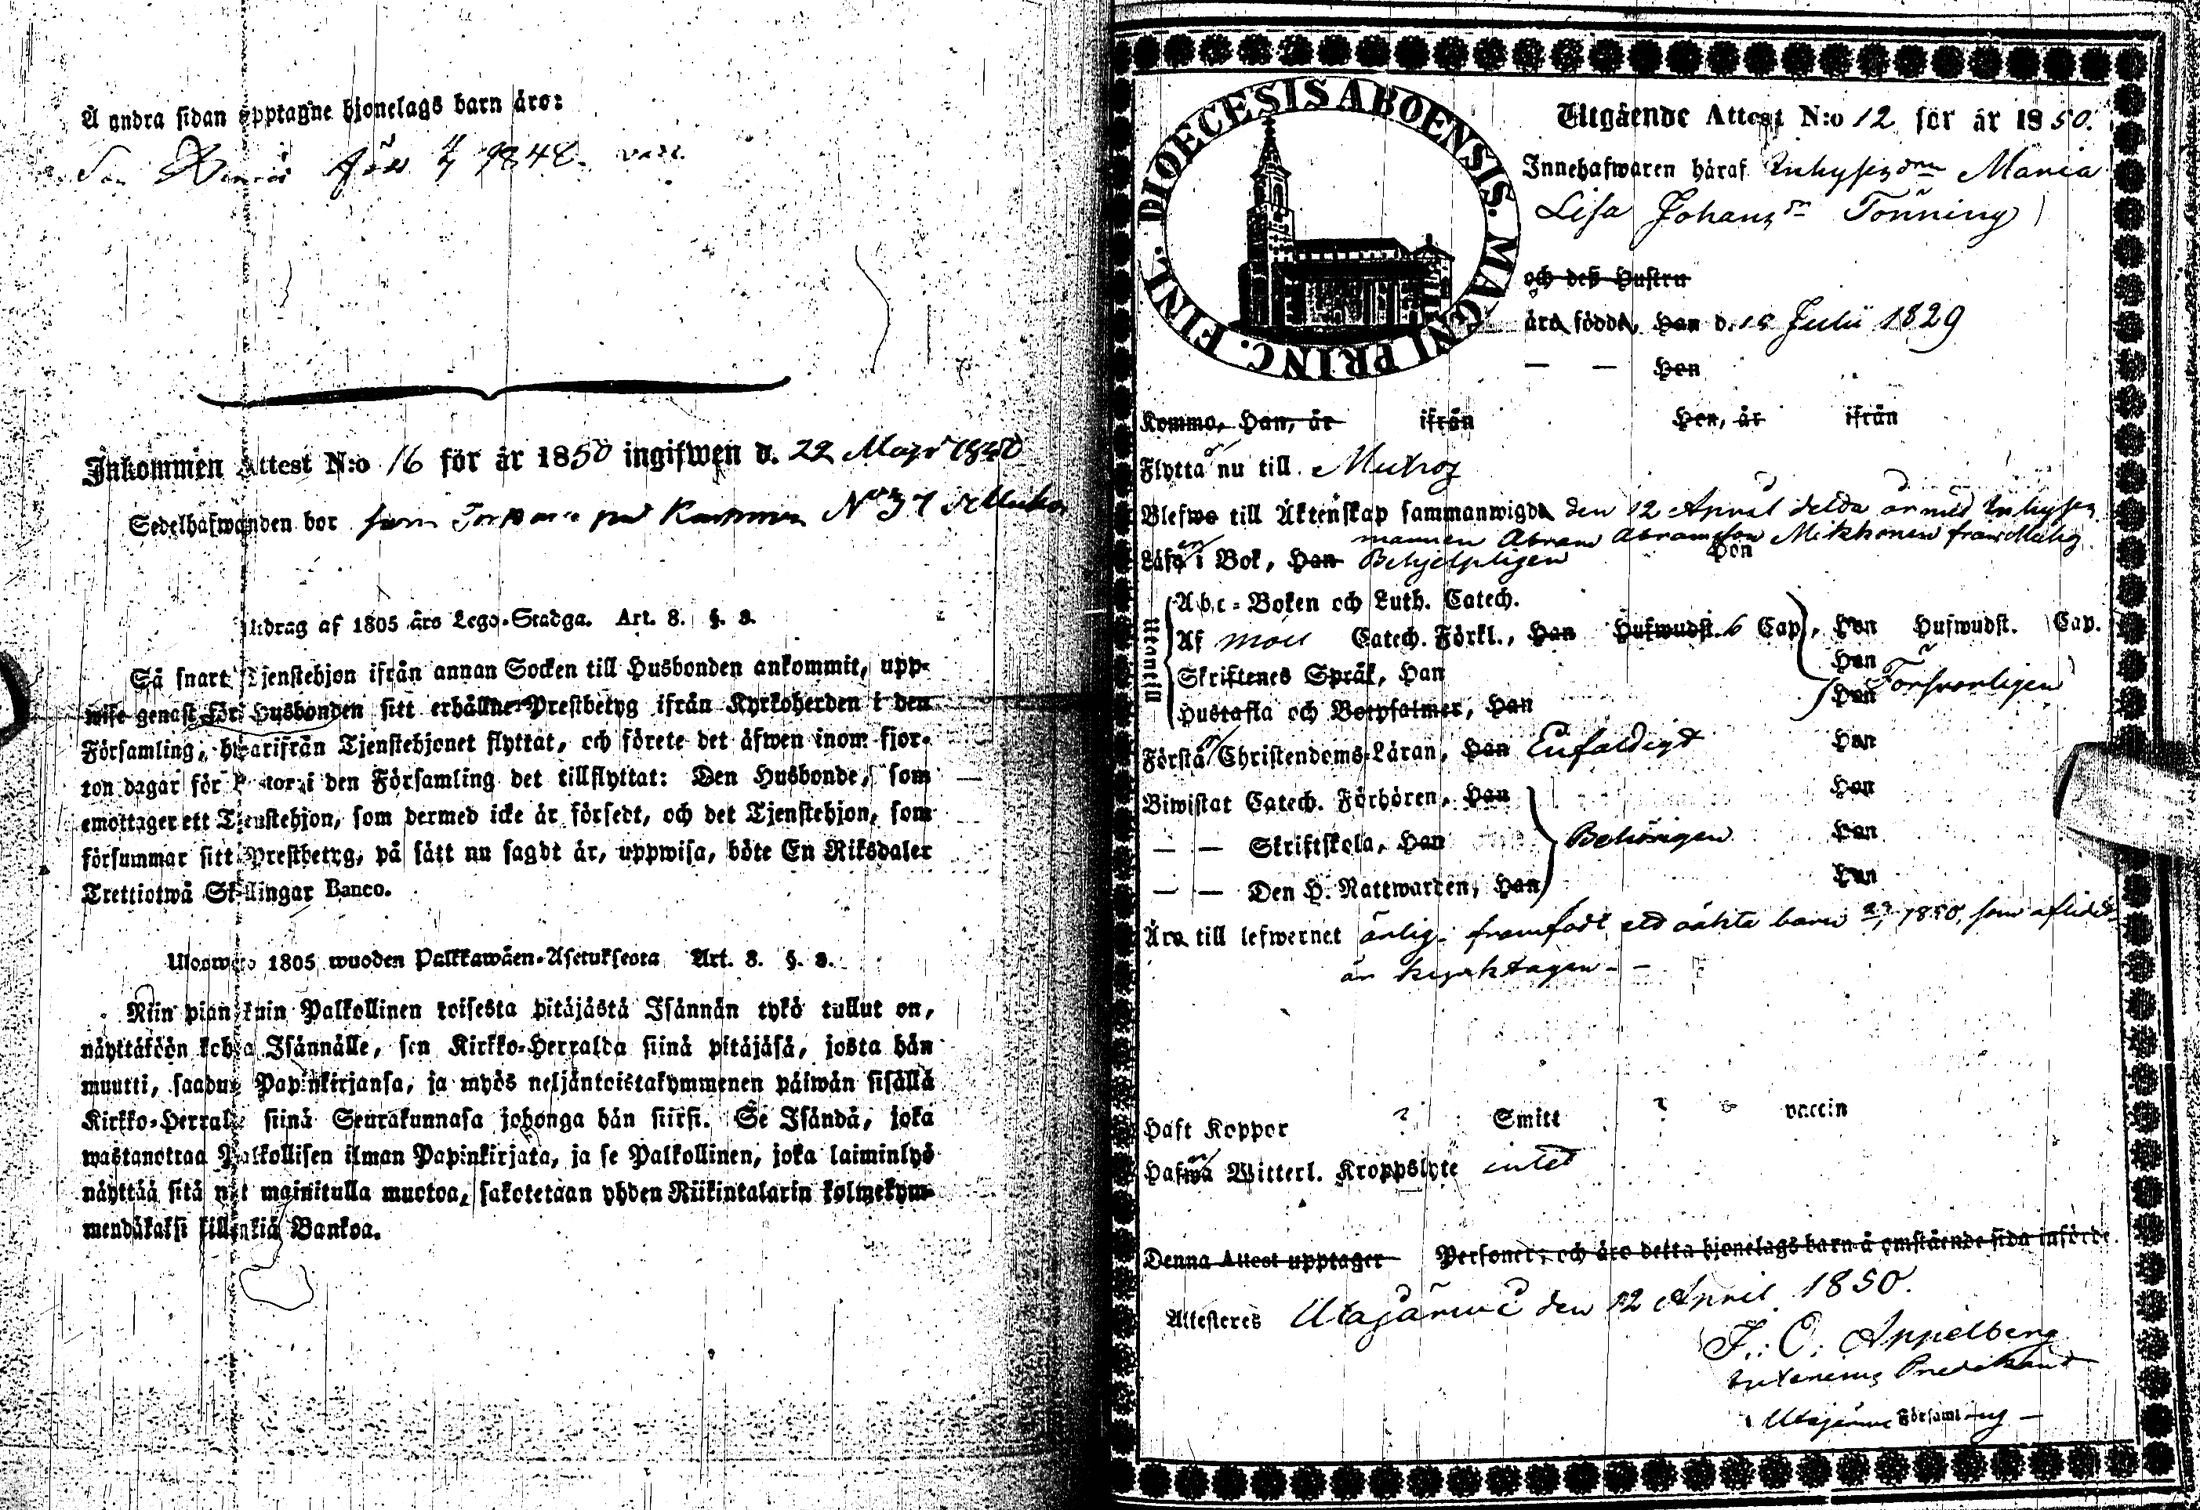 Å andra sidan upptagne hjonelags barn äro:
Son
Inkommen Attest N:o 16 för år 1850 ingifwen d. 22 Maji
Sedelhafwanden bor som på N:o 37
Utdrag af 1805 års Lego-Stadga. Art. 8. §. 8.
Så snart Tjenstehjon ifrån annan Socken till Husbonden ankommit, upp-
wise genast för Husbonden sitt erhållne Prestbetyg ifrån Kyrkoherden i den
Församling, hwarifrån Tjenstehjonet flyttat, och förete det äfwen inom fjor-
ton dagar för Pastor i den Församling det tillflyttat: Den Husbonde, som
emottager ett Tjenstehjon, som dermed icke är försedt, och det Tjenstehjon, som
försummar sitt Prestbetyg, på sätt nu sagdt är, uppwisa, böte En Riksdaler
Trettiotwå Skillingar Banco.
1805 wuoden Palkkawäen-Asetuksesta Art. 8. §. 8.
Niin pian kuin Palkollinen toisesta pitäjästä Isännän tykö tullut on,
näyttäköön kohta Isännälle, sen Kirkko-Herralda siinä pitäjäsä, josta hän
muutti, saadun Papinkirjansa, ja myös neljäntoistakymmenen päiwän sisällä
Kirkko-Herralle siinä Seurakunnasa johonga hän siirsi. Se Isändä, joka
wastanottaa Palkollisen ilman Papinkirjata, ja se Palkollinen, joka laiminlyö
näyttää sitä nyt mainitulla muotoa, sakotetaan yhden Riikintalarin kolmekym-
mendäkaksi killinkiä Bankoa.
DIOECESIS ABOENSIS. MAGNI PRINC. FINL.
Utgående Attest N:o 12 för år 1850.
Innehafwaren häraf Inhyses Maria
Lisa Johans dr Tönning
och deß Hustru
äro födde, Han d. 15 Julii 1829
— — Hon
Komma, Han, år ifrån Hon, år ifrån
Flytta nu till Muhos
Blefwo till Äktenskap sammanwigde den 12 April detta år med Inhyses
mannen Abram Abramsson Mikkonen från Muhos
Läsa i Bok, Han Behjelpligen Hon
Utantill
Abc-Boken och Luth. Catech.
Af Catech. Förkl., Han Hufwudst. 6 Cap., Hon Hufwudst. Cap.
Skriftenes Språk, Han Hon
Hustafla och Botpsalmer, Han Hon Försvarligen
Förstå Christendoms-Läran, Han Enfaldigt Hon
Biwistat Catech. Förhören, Han Hon
— — Skriftskola, Han Behörigen Hon
— — Den H. Nattwarden, Han Hon
Äro till lefwernet ärlig, framfödt ett oäkta barn 1850, som aflidit
är kyrktagen —
Haft Koppor Smitt vaccin
Hafwa Witterl. Kroppslyte intet
Denna Attest upptager Personer, och äro detta hjonelags barn å omstående sida införde.
Attesteres Utajärwi den 12 April 1850.
J. O. Appelberg
Predikant
Utajärwi Församling —